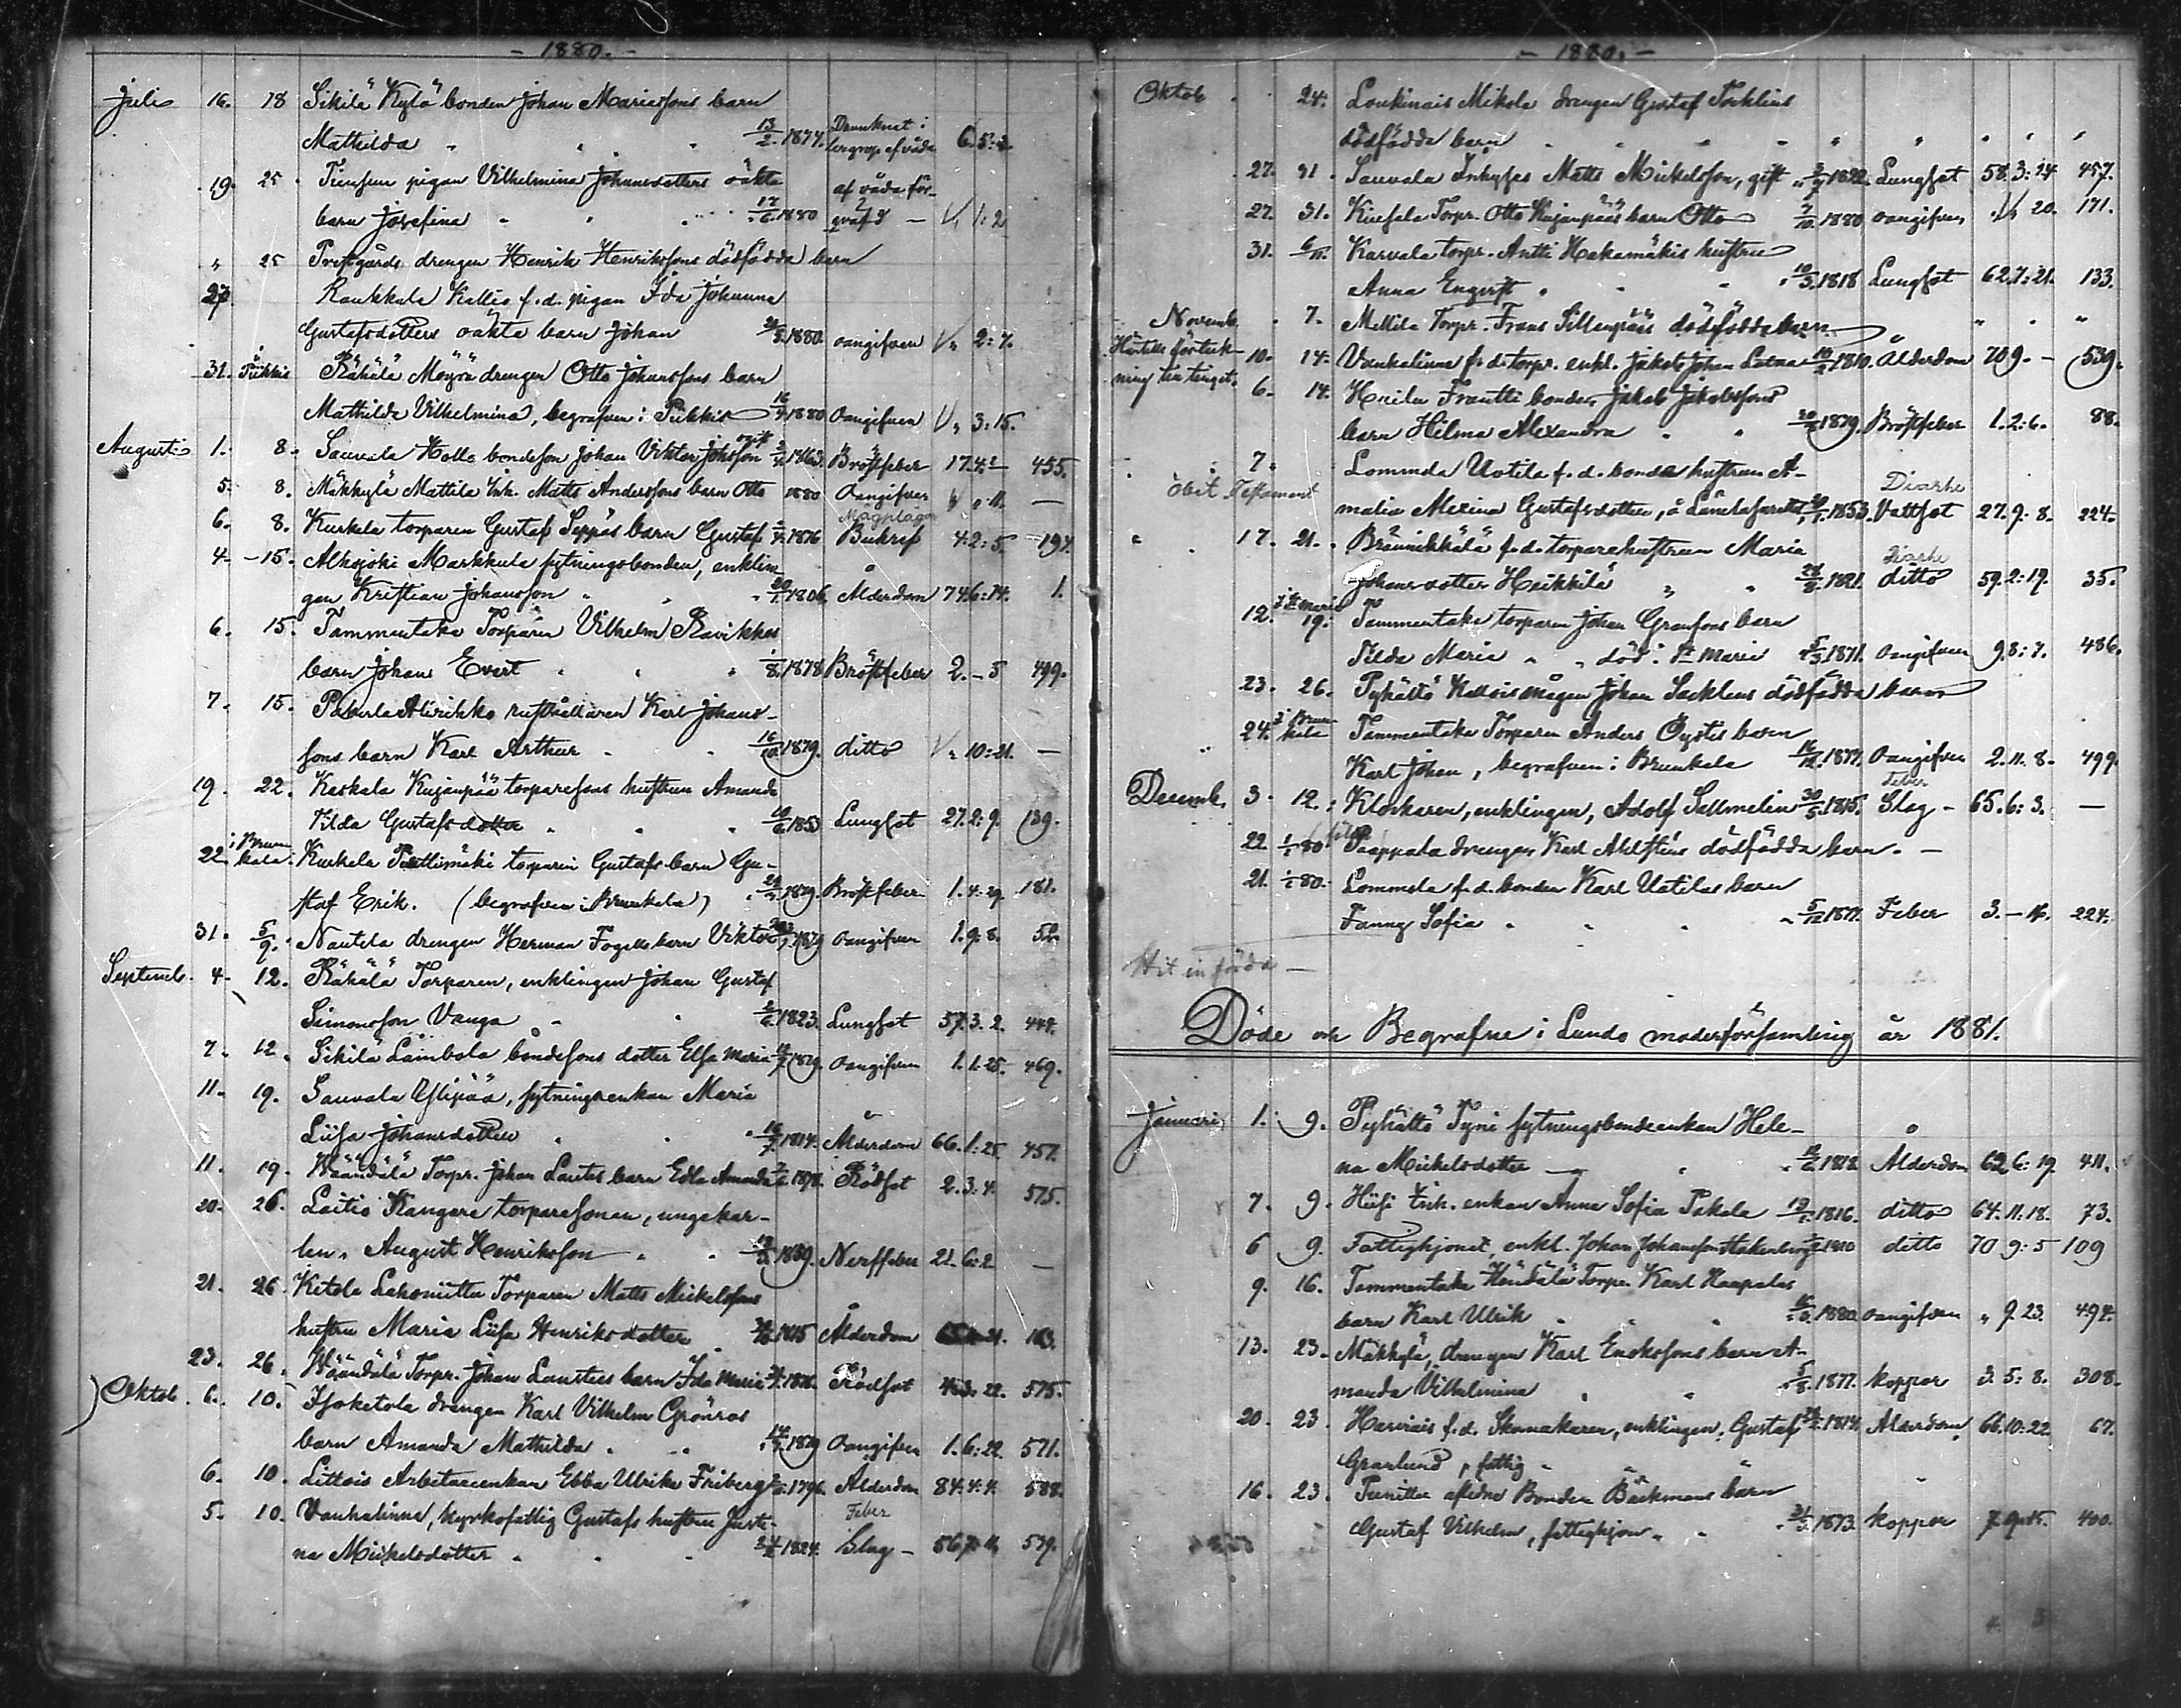 - 1880. -
Juli 16. 18 Sikilä Kylä bonden Johan Mariasfons barn
Mathilda 13/2 1874. Drunknat i af våda 6. 5: 3.
19. 25 pigan Vilhelmina Johansdotters oäkta af våda för-
barn Josefina 17/6 1880 qväfd - 1: 2
" 25 Prestgårds drengen Henrik Henriksfons dödfödda barn
27 Raukkala Kallis f.d. pigan Ida Johanna
Gustafsdotters oäkta barn Johan 1880. oangifven 2: 7.
31. Piikkis Räkälä Möyrä drengen Otto Johansfons barn
Mathilda Vilhelmina, begrafven i Piikkis 16/4 1880 Oangifven 3: 15.
Augusti 1. 8. Sauvala Holls bondeson Johan Viktor Johsson ogift 1863. Bröstfeber 17. 4: 455.
5. 8. Mäkkylä Mattila Inh. Matts Andersfons barn Otto 1880 Oangifven 11. —
6. 8. Kurkela torparen Gustaf Seppäs barn Gustaf 1876 Magplågor Bukref 4: 2: 5. 194.
4. - 15. Alhojoki Markkula sytningsbonden, enklin-
gen Kristian Johansson 20/1 1806. Ålderdom 74. 6: 14. 1.
6. 15. Tammentaka Torparen Vilhelm Ravikkas
barn Johan Evert 1/8. 1878 Bröstfeber 2. - 5 499.
7. 15. Pakurla Alirihko rusthållaren Karl Johans-
sons barn Karl Arthur 16/10 1879. ditto 10: 21. —
19. 22. Kaskala Kujanpää torparesons hustrun Amanda
Tilda Gustafsdotter 10/6 1853 Lungsot 27. 2: 9. 139.
22. i Brunkala Kurkela Tuittumäki torparen Gustafs barn Gu-
staf Erik. (begrafven i Brunkala) 1879. Bröstfeber 1. 4: 29. 181.
31. 5/9. Nautela drengen Herman Fogells barn Viktor 1879 oangifven 1. 9. 8. 52.
Septemb. 4. 12. Räkälä Torparen, enklingen Johan Gustaf
Simonsson Vanga 2/6 1823. Lungsot 57. 3. 2. 442.
7. 12. Sikilä Lambola bondesons dotter Elsa Maria 1879. oangifven 1. 1. 25. 469.
11. 19. Sauvala Ylipää, sytningsenkan Maria
Liisa Johansdotter 16/7 1814. Ålderdom 66. 1: 25 457.
11. 19. Wäändälä Torpr. Johan Lautes barn Edla Amanda 1878. Rödsot 2. 3: 4. 575.
20. 26. Laitio Kangare torparesonen, ungekar-
len August Henriksson 18/3 1859. Nervfeber 21. 6: 2 —
21. 26. Ketola Lahonitta Torparen Matts Mickelsfons
hustru Maria Liisa Henriksdotter 1815 Ålderdom 21. 163.
23. 26. Wäändälä Torpr. Johan Lautees barn Ida Maria 1876. Rödsot 22. 575.
Oktob. 6. 10. Isoketola drengen Karl Vilhelm Grönros
barn Amanda Mathilda 14/3 1879 Oangifven 1. 6: 22 571.
6. 10. Littois Arbetareenkan Ebba Ulrika Friberg 1796. Ålderdom 84. 4. 4. 588.
5. 10. Vanhalinna, kyrkofattig Gustafs hustru Justi- Feber
na Mickelsdotter 1824. Slag - 56. 7: 11. 539.
- 1880. -
Oktob. 24. Loukinais Mikola drengen Gustaf Torklins
dödfödda barn
27. 31. Sauvala Inhyses Matts Mickelsson, gift 1822. Lungsot 58. 3: 24 457.
27. 31. Kiusala Torpr. Otto Kujanpääs barn Otto 7/10. 1880 oangifven 20. 171.
31. 6/11. Karvala torpr. Antti Hakamäkis hustru
Anna Engerst 10/3. 1818 Lungsot 62. 7: 21. 133.
Novemb. 7. Mellila Torpr. Frans Sillanpääs dödfödda barn
Härtills förteck- 10. 14. Vanhalinna f. d. torpr. enkl. Jakob Johan Latva 10/2 1810. Ålderdom 70 9. - 539.
ning till tinget. 6. 14. Huila Frantti bonden Jakob Jakobssons
barn Hilma Alexandra 1879. Bröstfeber 1. 2: 6. 88.
7. Lommela Uotila f. d. bonde hustrun A- Diarhe
obit Testament malia Maxima Gustafsdotter, å Länslasarettet 1853. Vattsot 27. 9. 8. 224.
17. 21. Brännikkälä f. d. torparehustrun Maria Diarhe
Johansdotter Heikkilä 28/8 1821. ditto 59. 2: 19. 35.
12. i St Marie 19. Tammentaka torparen Johan Granfors barn
Tilda Maria död i St Marie 5/3 1871. oangifven 9. 8: 7. 486.
23. 26. Pyhältö Kallois mågen Johan Sacklens dödfödda barn
24. i Brunkala Tammentaka Torparen Anders Öystis barn
Karl Johan, begrafven i Brunkala 16/12. 1877. Oangifven 2. 11. 8. 499.
Feber
Decemb. 3. 12. Klockaren, enklingen, Adolf Sallmelin 30/5 1815. Slag - 65. 6: 3. —
22. 1/1 80. Paappala drengen Karl Ahlstens dödfödda barn. -
21. 1/1 80. Lommela f. d. bonden Karl Uotilas barn
Fanny Sofia 5/12 1877. Feber 3. - 16. 224.
Hit införda —
Döde och Begrafne i Lundo moderförsamling år 1881.
Januari 1. 9. Pyhältö Tyni sytningsbondeenkan Hele-
na Mickelsdotter 12/6 1818. Ålderdom 62. 6: 19. 411.
7. 9. Hiisi Inh. enkan Anna Sofia Pakala 19/1. 1816. ditto 64. 11. 18. 73.
6 9. Fattighjonet, enkl. Johan Johansson Hakenberg 1810 ditto 70 9: 5 109
9. 16. Tammentaka Händälä Torpr. Karl Haapalas
barn Karl Ulrik 1880. oangifven " 9. 23. 494.
13. 23. Mäkkylä, drengen Karl Enokssons barn A-
manda Vilhelmina 5/8. 1877. koppor 3. 5: 8. 308.
20. 23. Harviais f. d. Skomakaren, enklingen, Gustaf 1814. Ålderdom 66. 10: 22. 67.
Granlund, fattig
16. 23. aflidne Bonden Bäckmans barn
Gustaf Vilhelm, fattighjon. 31/3. 1873. koppor 7. 9. 15. 400.